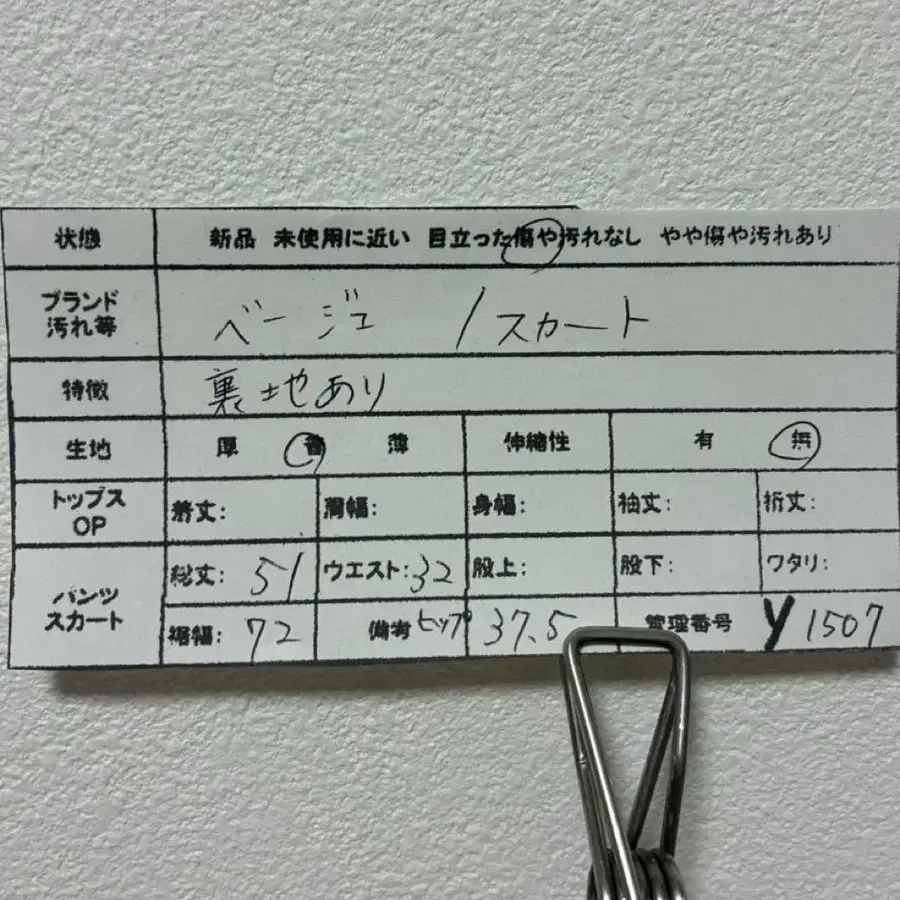 状態 新品 未使用に近い 目立った傷や汚れなし やや傷や汚れあり
ブランド
汚れ等
ベージュ / スカート
特徴 裏地あり
生地 厚 普 薄 伸縮性 有 無
トップス
OP
着丈: 肩幅: 身幅: 袖丈: 裄丈:
パンツ
スカート
総丈: 51 ウエスト: 32 股上: 股下: ワタリ:
裾幅: 72 備考 ヒップ 37.5 管理番号 Y 1507